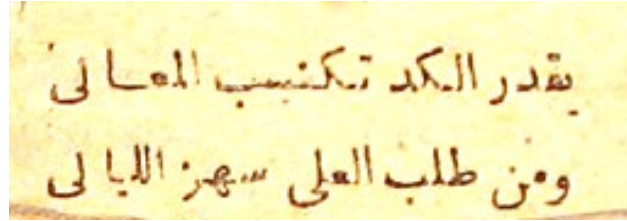 بقدر الكد تكتسب المعالى
ومن طلب العلى سهر الليالى